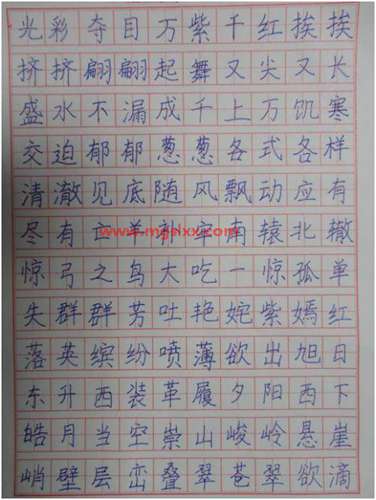 光彩夺目万紫千红挨挨
挤挤翩翩起舞又尖又长
盛水不漏成千上万饥寒
交迫郁郁葱葱各式各样
清澈见底随风飘动应有
尽有亡羊补牢南辕北辙
www.mgnlxx.com
惊弓之鸟大吃一惊孤单
失群群芳吐艳姹紫嫣红
落英缤纷喷薄欲出旭日
东升西装革履夕阳西下
皓月当空崇山峻岭悬崖
峭壁层峦叠翠苍翠欲滴